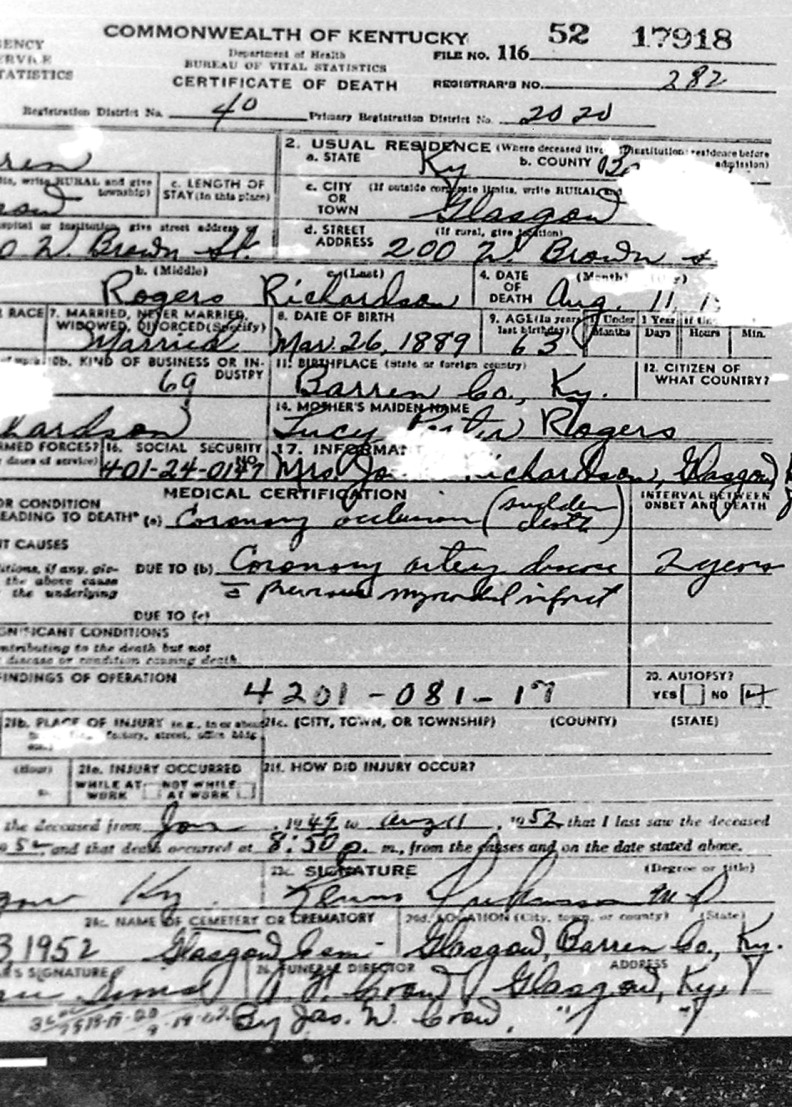 COMMONWEALTH OF KENTUCKY 52 17918
Department of Health FILE NO. 116
BUREAU OF VITAL STATISTICS
CERTIFICATE OF DEATH REGISTRAR'S NO. 282
Registration District No. 40 Primary Registration District No. 2020
2. USUAL RESIDENCE (Where deceased live institution: residence before admission)
a. STATE Ky b. COUNTY
write RURAL and give township) c. LENGTH OF STAY (in this place) c. CITY OR TOWN (If outside corporate limits, write RURAL and Glasgow
give street address) W. Brown St. d. STREET ADDRESS (If rural, give location) 200 W. Brown
b. (Middle) Rogers c. (Last) Richardson 4. DATE OF DEATH (Month) Aug. 11
RACE 7. MARRIED, NEVER MARRIED, WIDOWED, DIVORCED (Specify) Married 8. DATE OF BIRTH Mar. 26, 1889 9. AGE (In years last birthday) 63 Under 1 Year Months Days Hours Min.
10b. KIND OF BUSINESS OR INDUSTRY 69 11. BIRTHPLACE (State or foreign country) Barren Co, Ky. 12. CITIZEN OF WHAT COUNTRY?
14. MOTHER'S MAIDEN NAME Lucy Rogers
ARMED FORCES? 16. SOCIAL SECURITY NO. 401-24-0147 17. INFORMANT Mrs. Richardson, Glasgow,
MEDICAL CERTIFICATION INTERVAL BETWEEN ONSET AND DEATH
OR CONDITION LEADING TO DEATH* (a) Coronary occlusion (sudden death)
CAUSES
if any, DUE TO (b) Coronary artery disease 2 years
the above cause
the underlying c̄ previous myocardial infarct
DUE TO (c)
SIGNIFICANT CONDITIONS
contributing to the death but not
disease or condition causing death.
FINDINGS OF OPERATION 4201-081-17 20. AUTOPSY? YES NO
21b. PLACE OF INJURY (e.g., in or about factory, street, office bldg. 21c. (CITY, TOWN, OR TOWNSHIP) (COUNTY) (STATE)
(Hour) 21e. INJURY OCCURRED WHILE AT WORK NOT WHILE AT WORK 21f. HOW DID INJURY OCCUR?
the deceased from Jan, 1949 to Aug 11, 1952 that I last saw the deceased
and that death occurred at 8:50 p. m., from the causes and on the date stated above.
SIGNATURE (Degree or title)
Ky. MD
24c. NAME OF CEMETERY OR CREMATORY 24d. LOCATION (City, town, or county) (State)
1952 Glasgow Cem. Glasgow, Barren Co, Ky.
SIGNATURE FUNERAL DIRECTOR ADDRESS
Crow Glasgow, Ky.
By Jas. W. Crow, " "